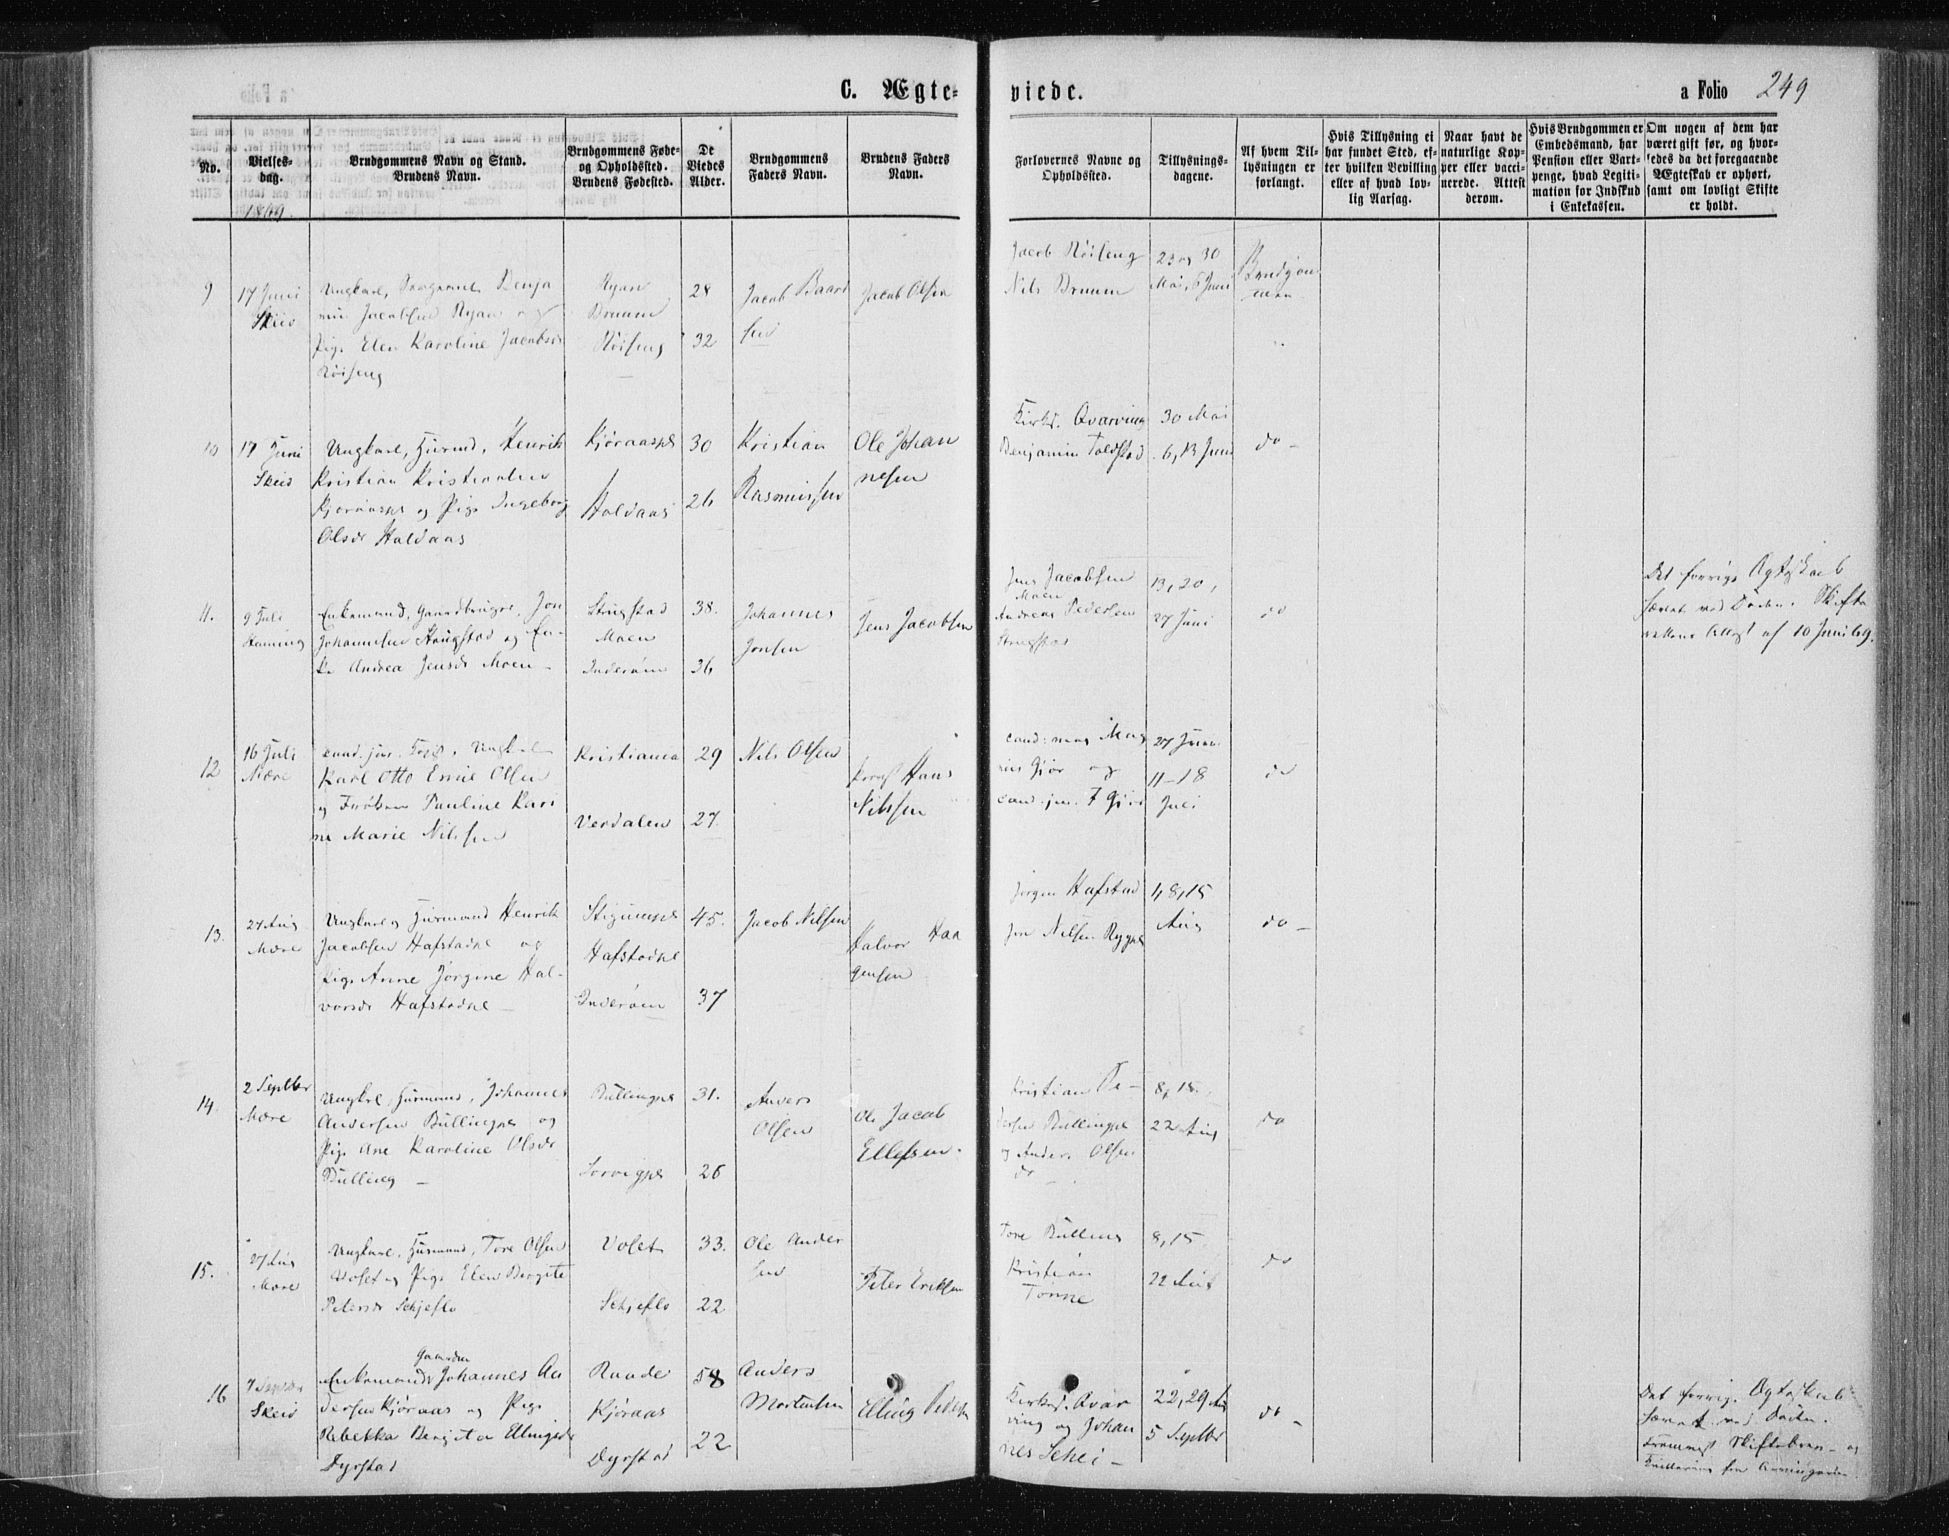 C. Ægte-
viede.
a Folio 249
No.
Vielses-
dag.
1869.
Brudgommens Navn og Stand.
Brudens Navn.
Brudgommens Føde-
og Opholdssted.
Brudens Fødested.
De
Viedes
Alder.
Brudgommens
Faders Navn.
Brudens Faders
Navn.
Forlovernes Navne og
Opholdssted.
Tillysnings-
dagene.
Af hvem Til-
lysningen er
forlangt.
Hvis Tillysning ei
har fundet Sted, ef-
ter hvilken Bevilling
eller af hvad lov-
lig Aarsag.
Naar havt de
naturlige Kop-
per eller vacci-
nerede. Attest
derom.
Hvis Brudgommen er
Embedsmand, har
Pension eller Vart-
penge, hvad Legiti-
mation for Indskud
i Enkekassen.
Om nogen af dem har
været gift før, og hvor-
ledes da det foregaaende
Ægteskab er ophørt,
samt om lovligt Skifte
er holdt.
9
17 Juni
Skeid
Ungkarl, Benja
min Jacobsen Ryan og
Pige Elen Karoline Jacobsdr
Røiseng
Ryan
Bruum
Røiseng
28
32
Jacob Baard
sen
Jacob Olsen
Jacob Røiseng
Nils Bruum
23 og 30
Mai, 6 Juni
Brudgom
men
10
17 Juni
Skeid
Ungkarl, Huusmd, Henrik
Kristian Kristiansen
Kjøraaspl og Pige Ingeborg
Olsdr Haldaas
Kjøraaspl
Haldaas
30
26
Kristian
Rasmussen
Ole Johan
nesen
Kirks. Qvarving
Benjamin Toldstad
30 Mai
6, 13 Juni
do -
11.
9 Juli
Henning
Enkemand, Gaardbruger, Jon
Johannesen Strugstad og En-
ke Andrea Jensdr Moen -
Strugstad
Moen
Inderøen
38.
36
Johannes
Jonsen
Jens Jacobsen
Jens Jacobsen
Moen
Andreas Pedersen
Strugstad
13, 20,
27 Juni
do
Det forrige Ægteskab
hævet ved Døden. Skifte
rettens Attest af 10 Juni 69.
12
16 Juli
Mære
cand. jur. Ungkarl
Karl Otto Emil Olsen
og Frøken Pauline Kari
ne Marie Nilssen
Kristiania
Verdalen
29
27.
Nils Olsen
Hans
Nilssen
cand: mag Mag
nus Gjør og
cand: jur. F Gjør
27 Juni
11 - 18
Juli
do
13.
27 Aug
Mære
Ungkarl og Huusmand Henrik
Jacobsen Hafstadpl og
Pige Anne Jørgine Hal-
vorsdr Hafstadpl -
Hafstadpl
Inderøen
45.
37
Jacob Nilsen
Halvor Haa
gensen
Jørgen Hafstad
Jon Nilsen Rygpl
1, 8, 15
Aug
do -
14.
2 Septbr
Mære
Ungkrl, Huusmand, Johannes
Andersen Bullingpl og
Pige Ane Karoline Olsdr
Bulling -
Bullingpl
Sorvigpl
31.
26
Anders
Olsen
Ole Jacob
Ellefsen.
Kristian Pe-
dersen Bullingpl
og Anders Olsen
do
8, 15.
22 Aug
do
15.
27 Aug
Mære
Ungkarl, Huusmand, Tore Olsen
Volset og Pige Elen Bergite
Petersdr Skjeflo
Volset
Skjeflo
33.
22
Ole Ander
sen
Peter Eriksen
Tore Bulling
Kristian
Tønne
8, 15
22 Aug
do
16
7 Septbr
Skeid
Gaardm
Enkemand Johannes An
dersen Kjøraas og Pige
Rebekka Bergitta Ellingsdr
Dyrstad
Raade
Kjøraas
Dyrstad
58
22
Anders
Mortensen
Elling Peders
Kirks. Qvar
ving og Johan
nes Schei -
22, 29 Aug
5 Septbr
do -
Det forrige Ægteskab
hævet ved Døden.
Fremvist Skiftebrev og